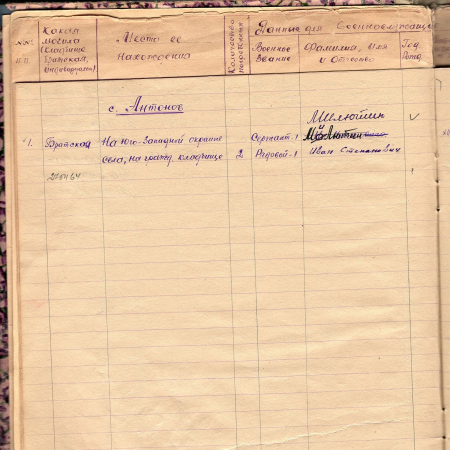 №№ п.п.
Какая могила (кладбище братская, индивидуальн)
Место ее нахождения
Количество погребенных
Данные для Военнослужащ
Военное Звание
Фамилия, Имя и Отчество
Год Рожд.
с. Антонов
Милютин
1. Братская На юго-Западной окраине Сержант-1
села, на гражд. кладбище 2 Рядовой-1 Иван Степанович